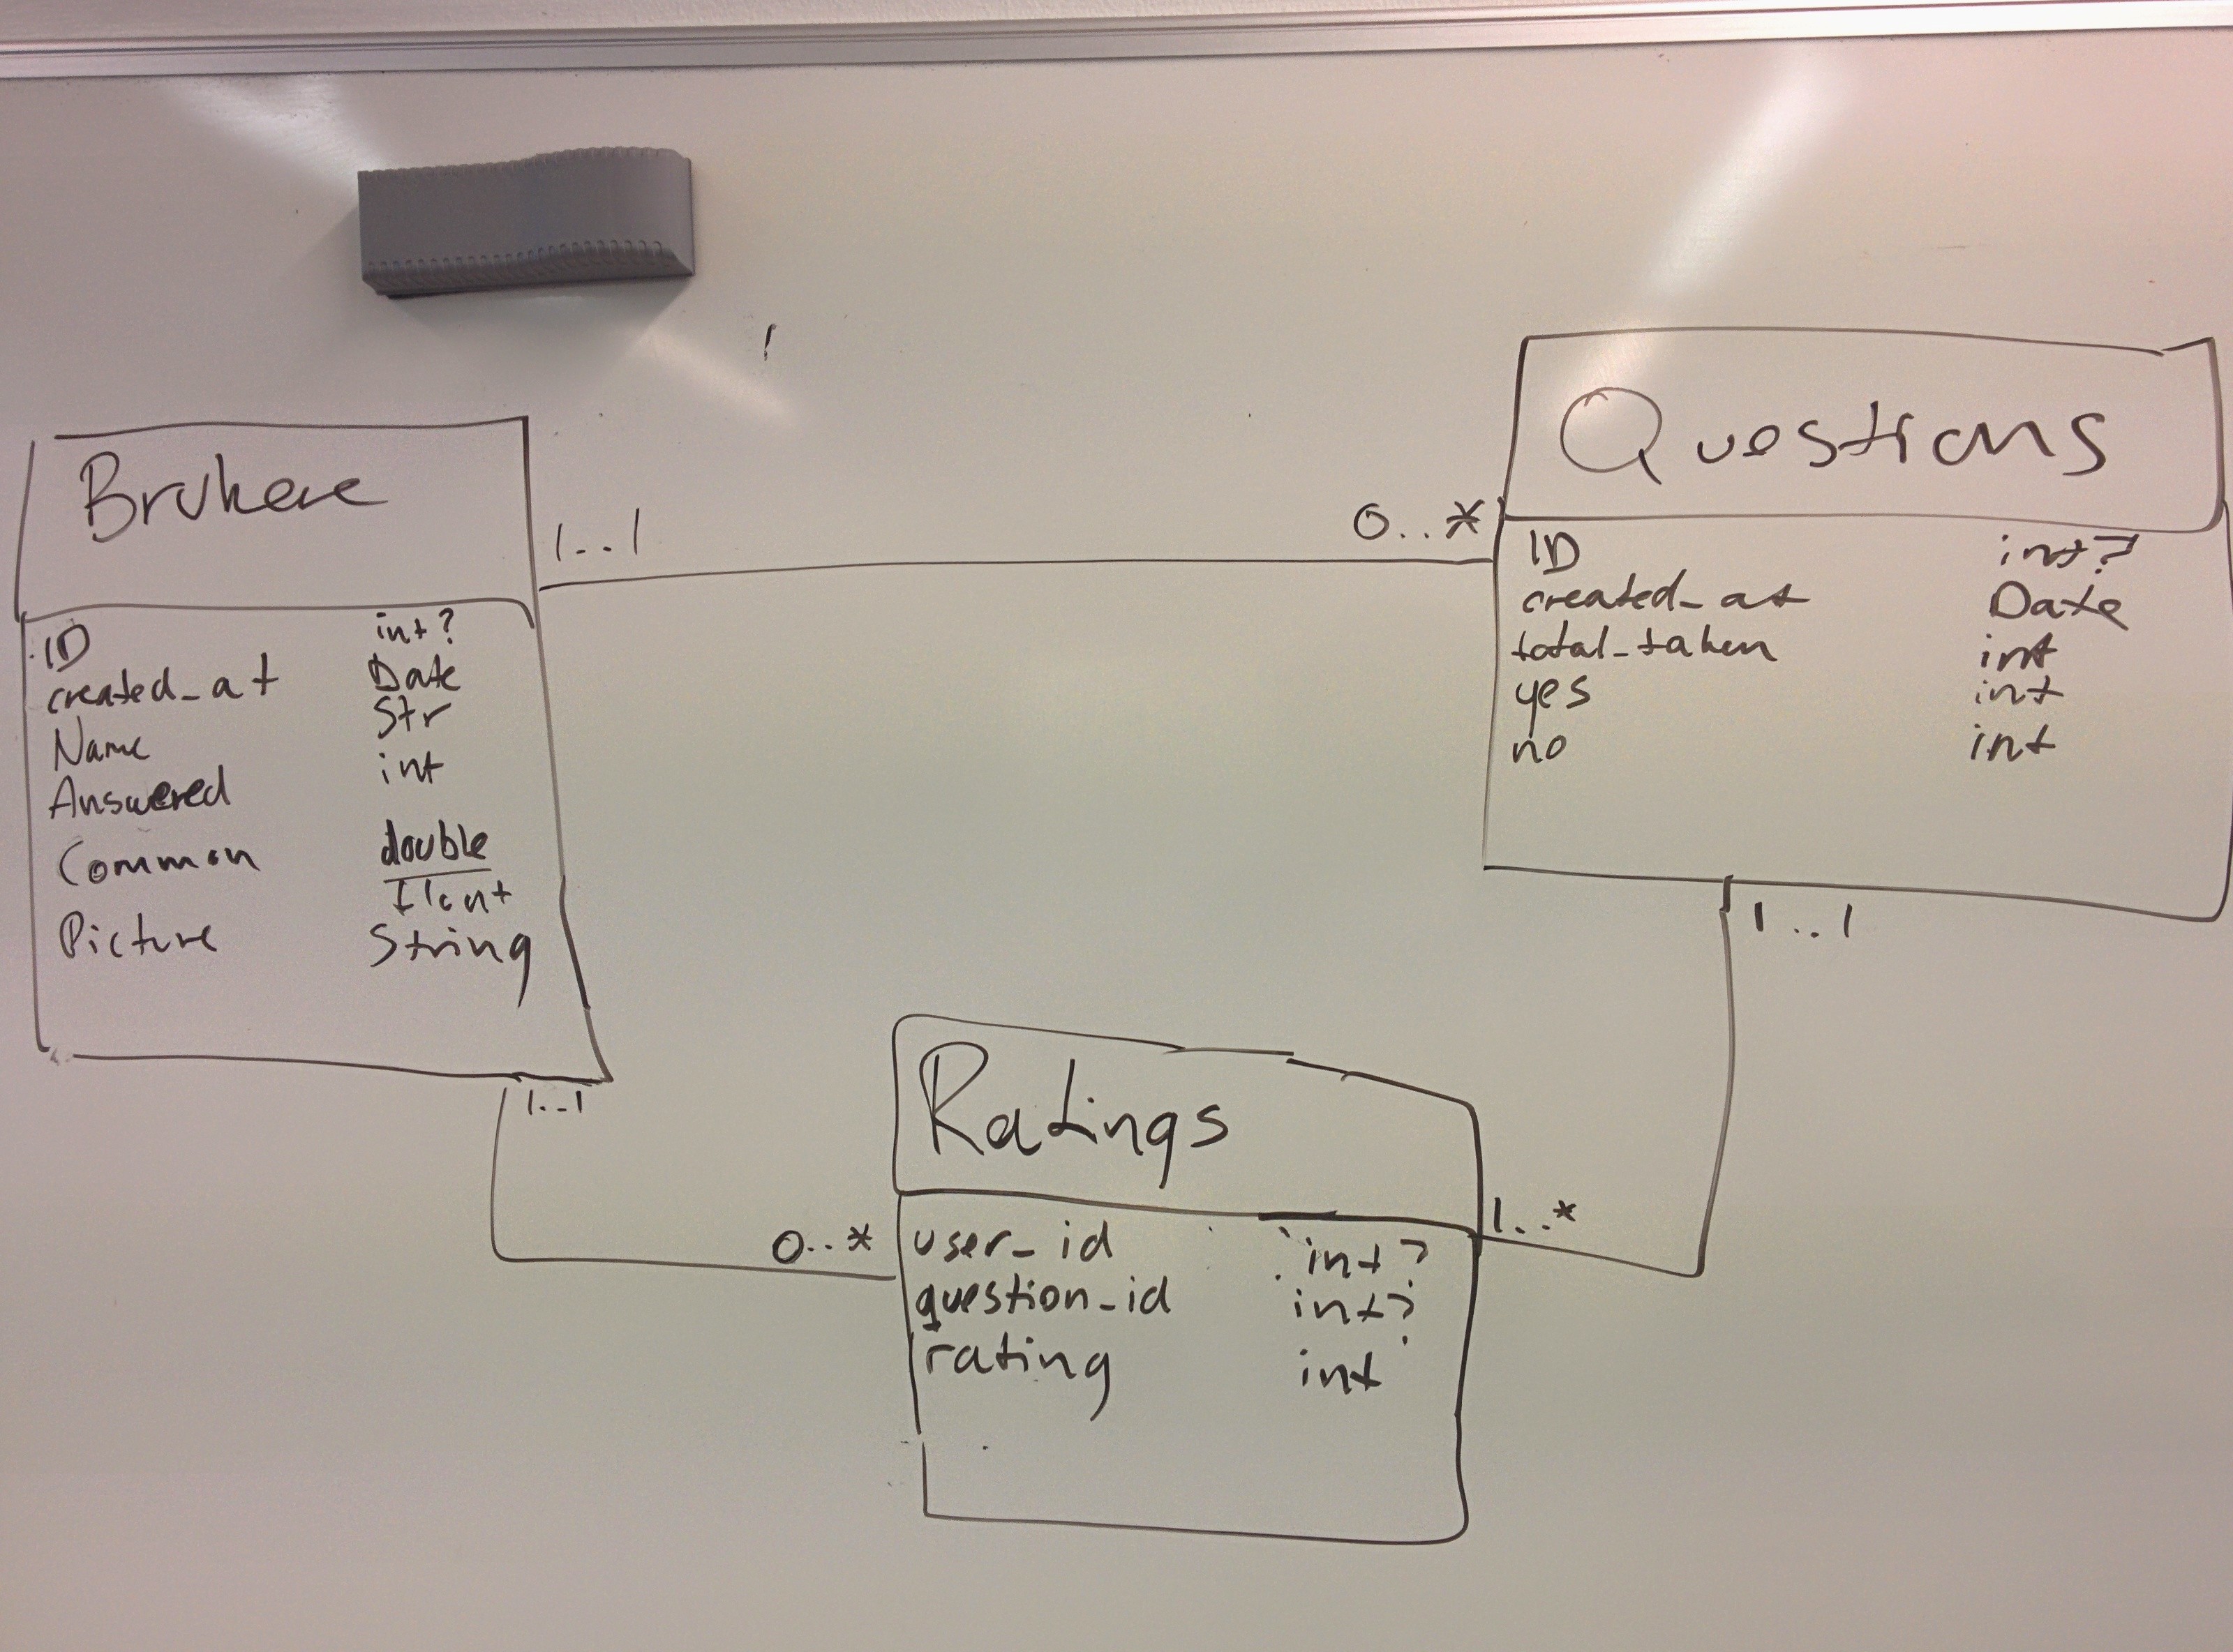 Brukere
ID int?
created_at Date
Name Str
Answered int
Common double
float
Picture String
1..1
0..*
Questions
ID int?
created_at Date
total_taken int
yes int
no int
1..1
1..1
0..*
Ratings
user_id int?
question_id int?
rating int
1..*